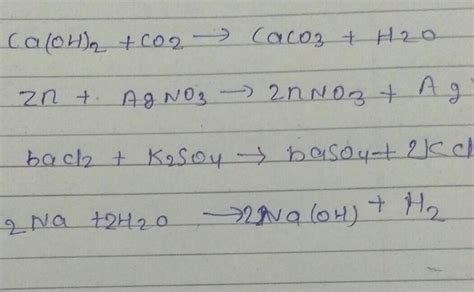 Ca(OH)2 + CO2 → CaCO3 + H2O
Zn + AgNO3 → ZnNO3 + Ag
bacl2 + K2SO4 → baSO4 + 2KCl
2Na + 2H2O → 2Na(OH) + H2